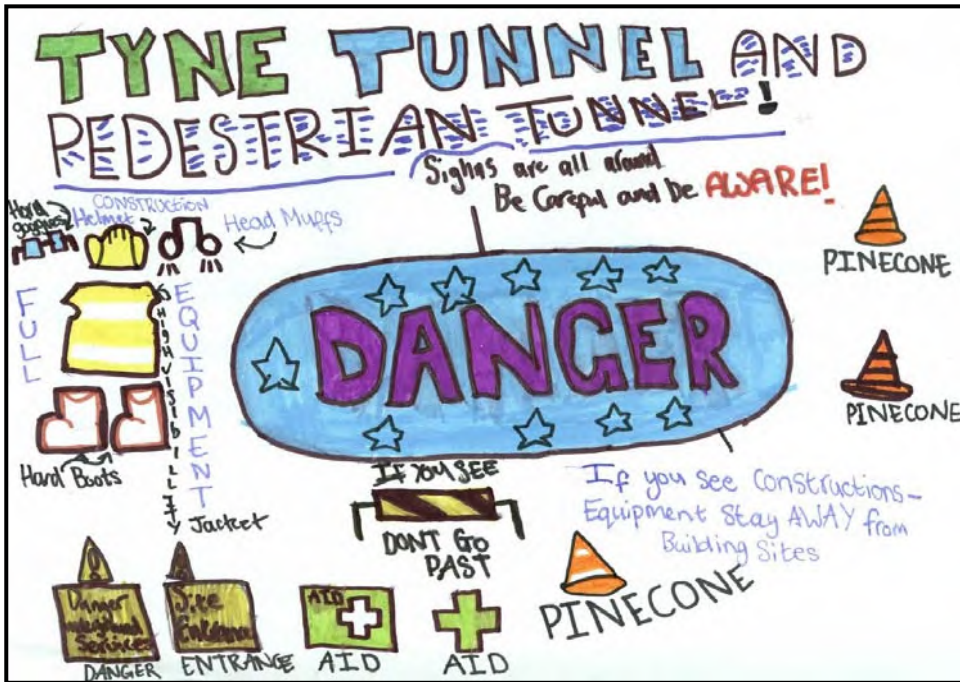 TYNE TUNNEL AND
PEDESTRIAN TUNNEL!
Sighns are all around
Be Careful and be AWARE!
Hard
goggles
CONSTRUCTION
Helmet
Head Muffs
FULL
EQUIPMENT
HIGH VISIBILLITY
Jacket
Hard Boots
DANGER
PINECONE
PINECONE
IF YOU SEE
DONT GO
PAST
If you see Constructions-
Equipment Stay AWAY from
Building Sites
PINECONE
Danger
Services
DANGER
Site
Entrance
ENTRANCE
AID
AID
AID